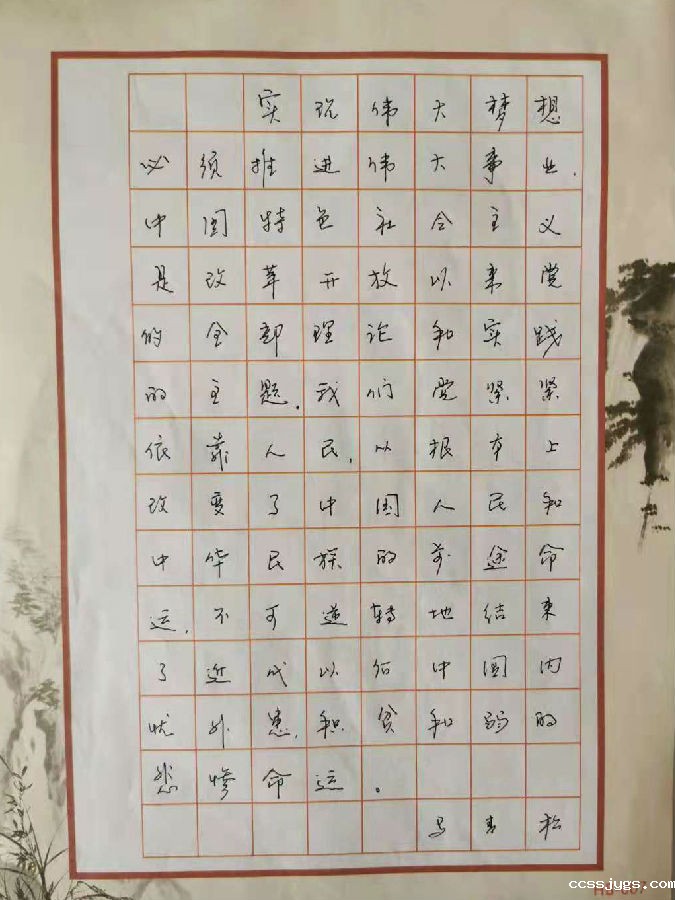 实现伟大梦想
必须推进伟大事业.
中国特色社会主义
是改革开放以来党
的全部理论和实践
的主题.我们党紧紧
依靠人民,从根本上
改变了中国人民和
中华民族的前途命
运,不可逆转地结束
了近代以后中国内
忧外患,积贫积弱的
悲惨命运。
马青松
ccssjugs.com